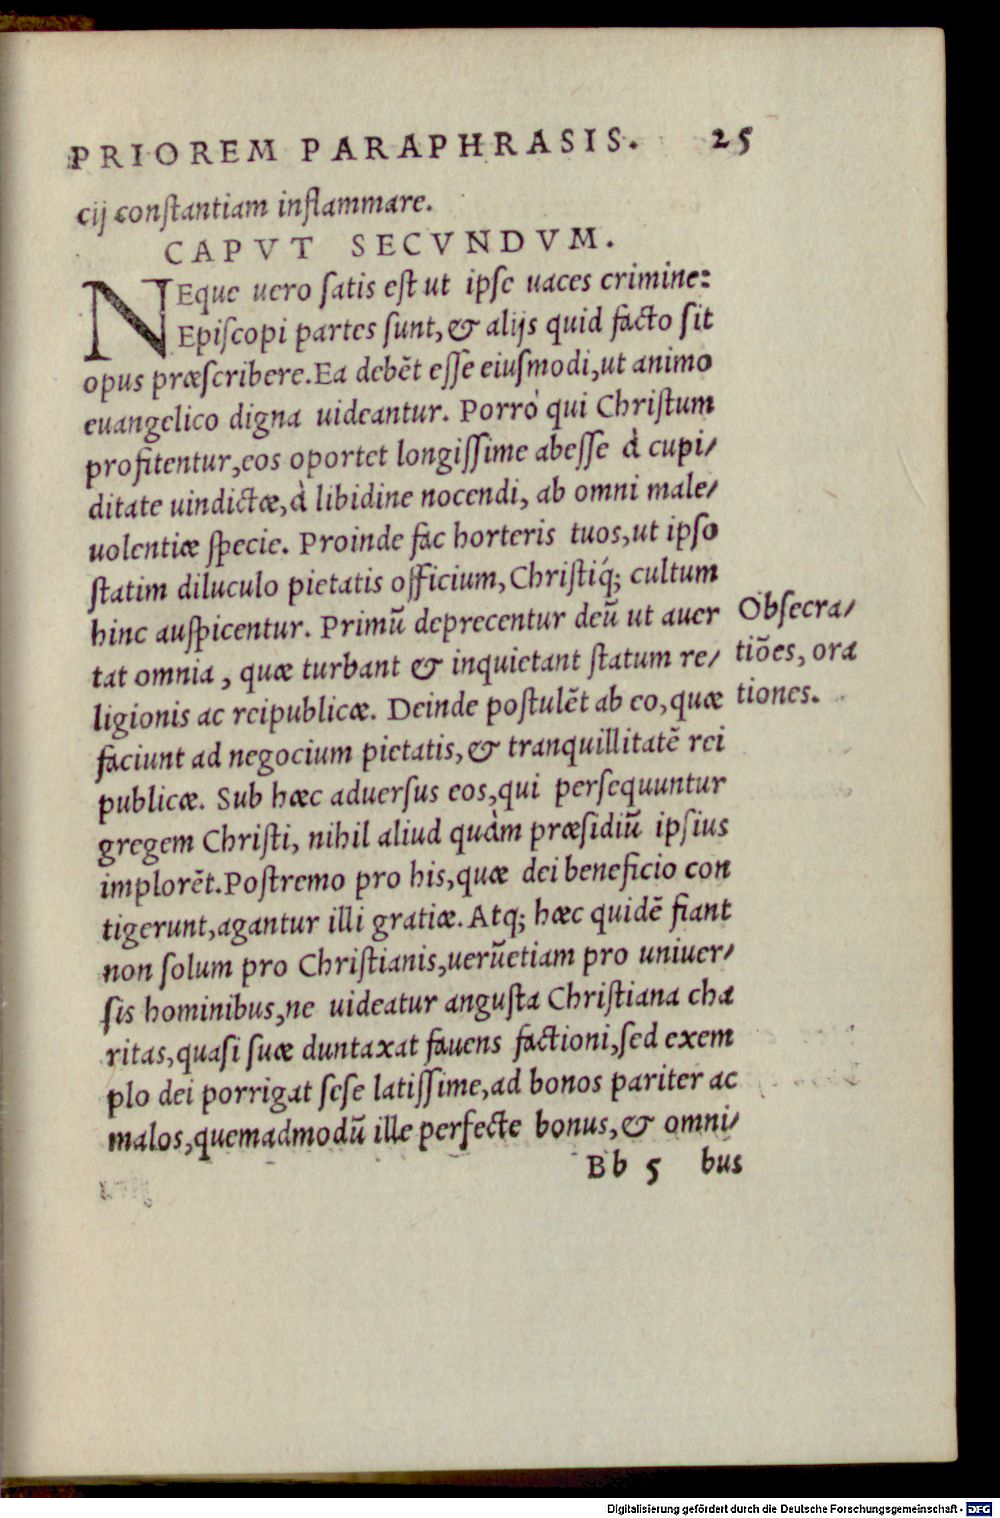 PRIOREM PARAPHRASIS. 25
cij constantiam inflammare.
CAPVT SECVNDVM.
NEque uero satis est ut ipse uaces crimine:
Episcopi partes sunt, & alijs quid facto sit
opus præscribere. Ea debēt esse eiusmodi, ut animo
euangelico digna uideantur. Porrò qui Christum
profitentur, eos oportet longissime abesse à cupi/
ditate uindictæ, à libidine nocendi, ab omni male/
uolentiæ specie. Proinde fac horteris tuos, ut ipso
statim diluculo pietatis officium, Christiq́; cultum
hinc auspicentur. Primū deprecentur deū ut auer
tat omnia, quæ turbant & inquietant statum re/
ligionis ac reipublicæ. Deinde postulēt ab eo, quæ
faciunt ad negocium pietatis, & tranquillitatē rei
publicæ. Sub hæc aduersus eos, qui persequuntur
gregem Christi, nihil aliud quàm præsidiū ipsius
implorēt. Postremo pro his, quæ dei beneficio con
tigerunt, agantur illi gratiæ. Atq; hæc quidē fiant
non solum pro Christianis, uerūetiam pro uniuer/
sis hominibus, ne uideatur angusta Christiana cha
ritas, quasi suæ duntaxat fauens factioni, sed exem
plo dei porrigat sese latissime, ad bonos pariter ac
malos, quemadmodū ille perfecte bonus, & omni/
Bb 5 bus
Obsecra/
tiōes, ora
tiones.
Digitalisierung gefördert durch die Deutsche Forschungsgemeinschaft - DFG